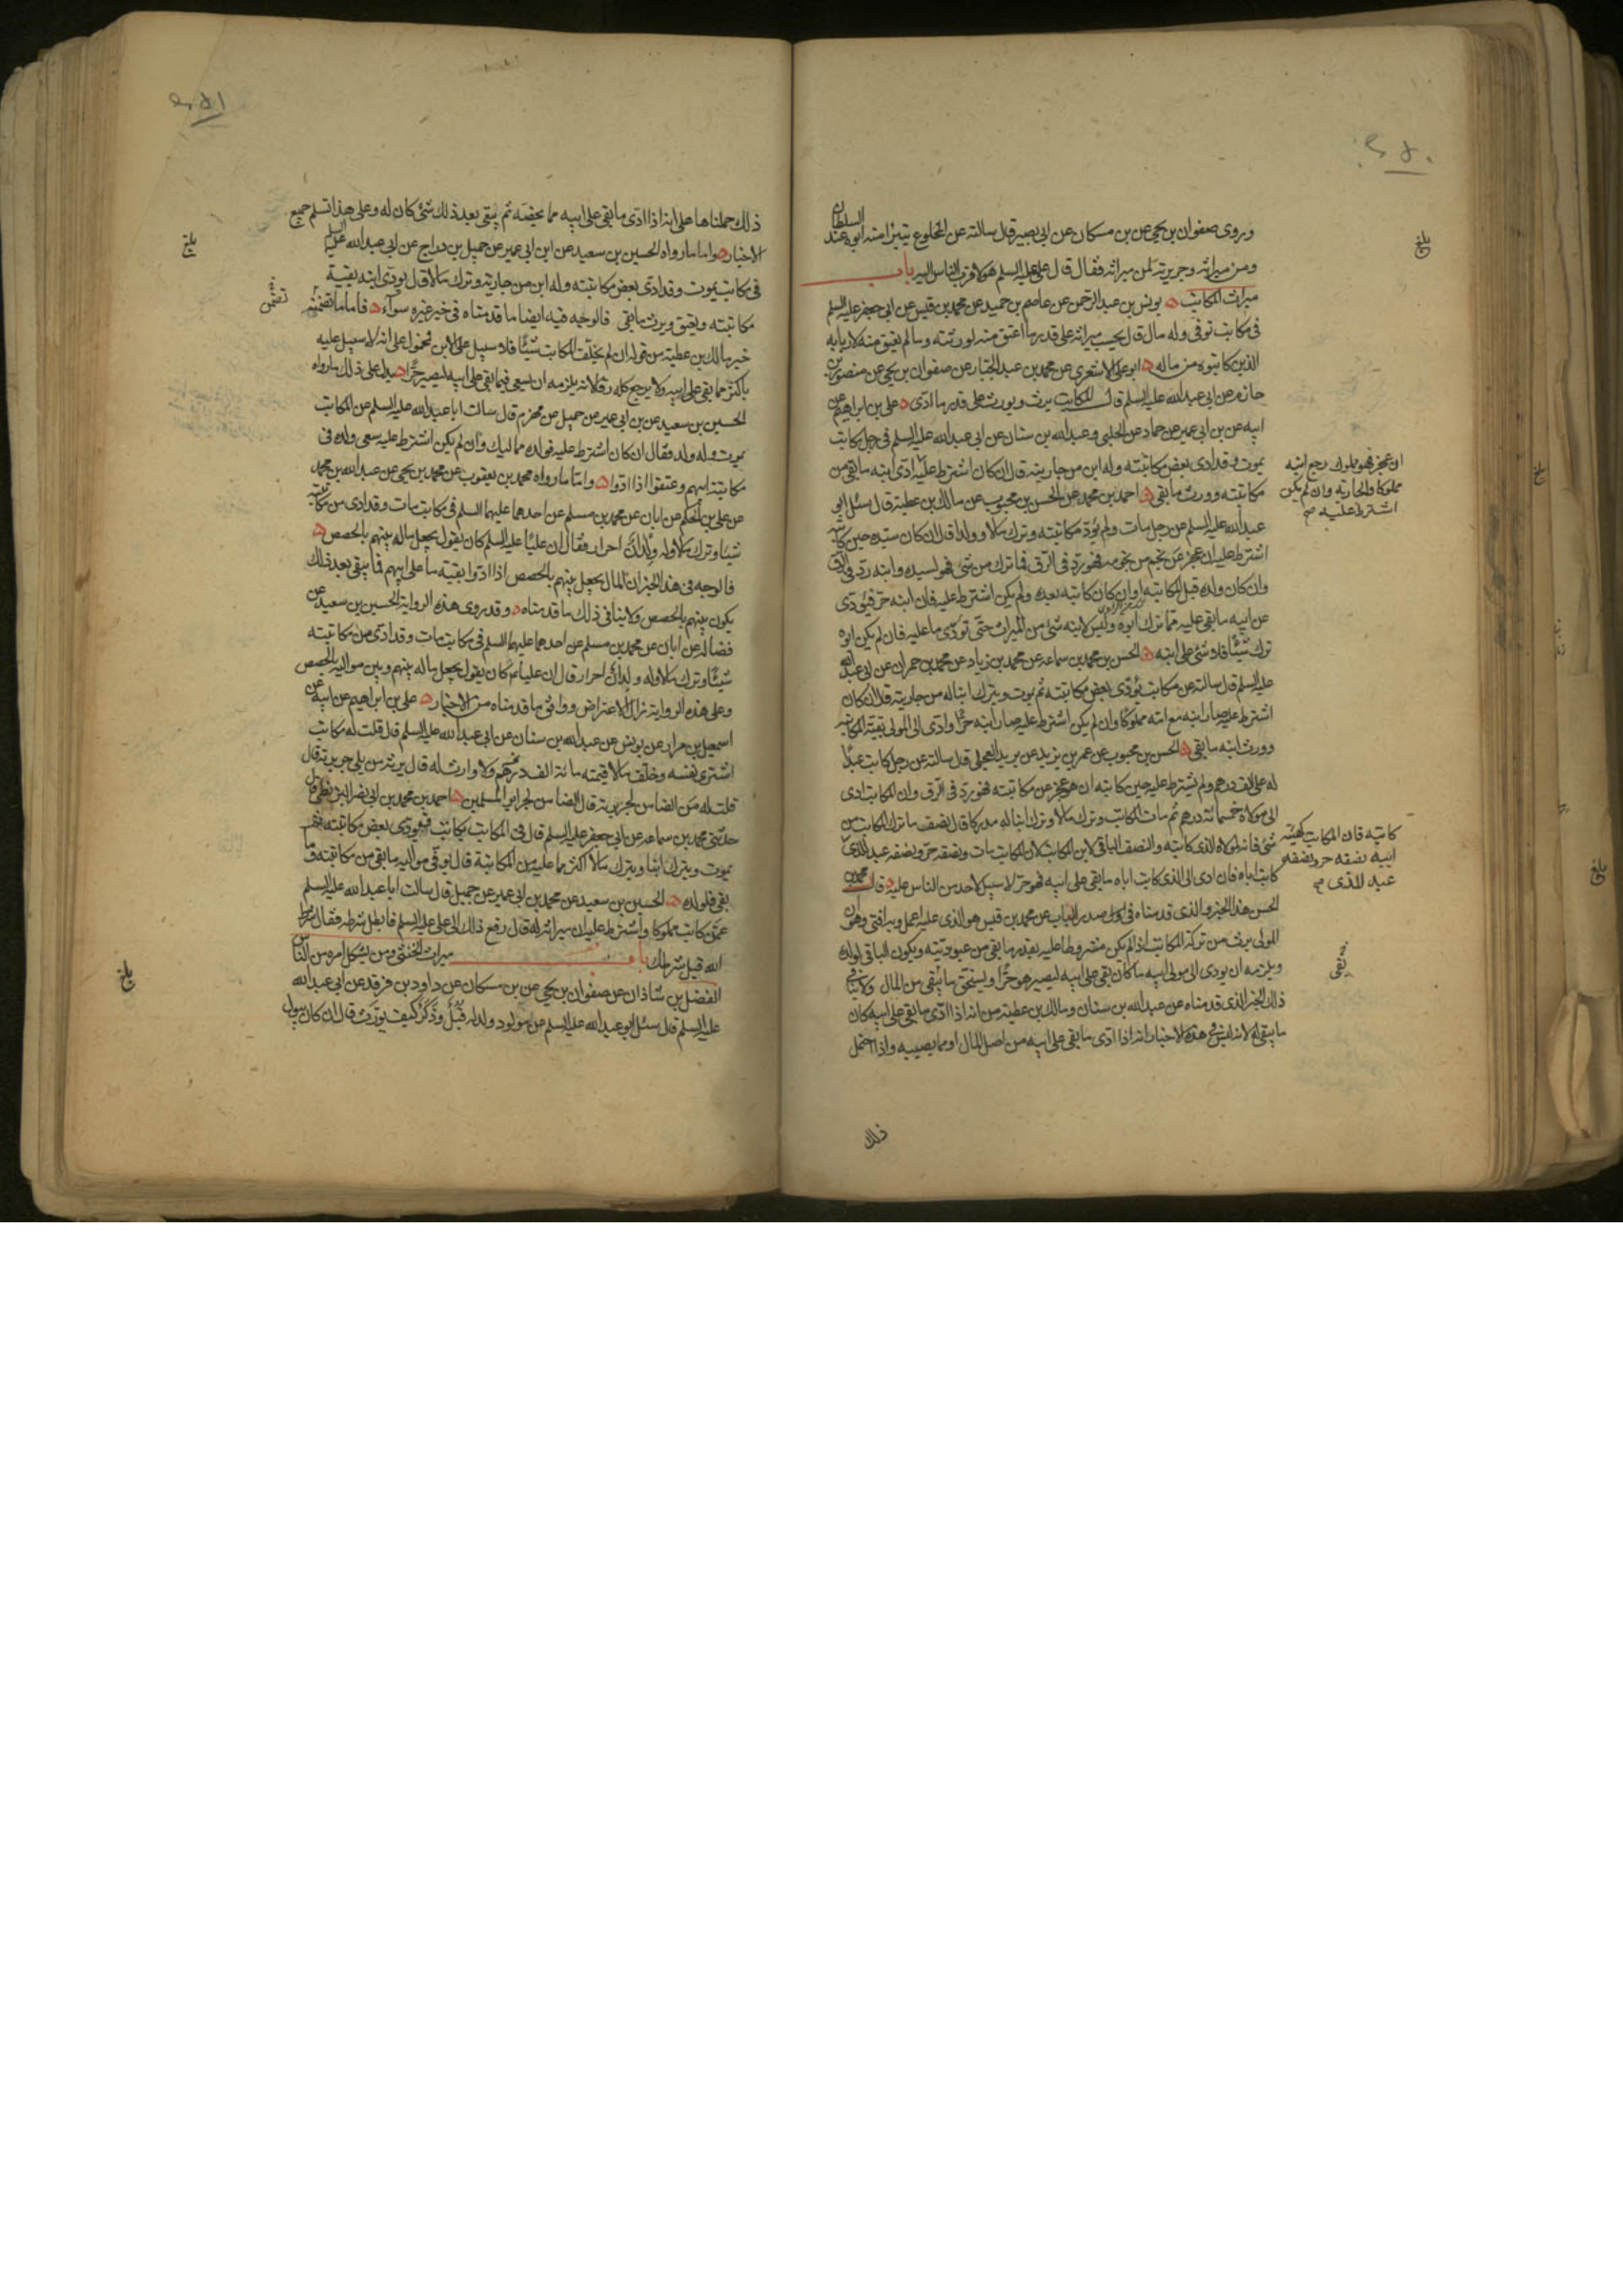 وروى صفوان بن يحيى عن بن مسكان عن ابى بصير قال سالته عن المخلوع يتبرا منه ابوه عند السلطان
ومن ميراثه وجريرته لمن ميراثه فقال قال على عليه السلم هو لاقرب الناس اليه باب
ميراث المكاتب يونس بن عبد الرحمن عن عاصم بن حميد عن محمد بن قيس عن ابى جعفر عليه السلم
فى مكاتب توفى وله مال قال يحسب ميراثه على قدر ما اعتق منه لورثته وما لم يعتق منه لاربابه
الذين كاتبوه من ماله ابو على الاشعرى عن محمد بن عبد الجبار عن صفوان بن يحيى عن منصور بن
حازم عن ابى عبد الله عليه السلم قال المكاتب يرث ويورث على قدر ما ادى على بن ابراهيم عن
ابيه عن بن ابى عمير عن حماد عن الحلبى وعبد الله بن سنان عن ابى عبد الله عليه السلم فى رجل مكاتب
يموت وقد ادى بعض مكاتبته وله ابن من جاريته قال ان كان اشترط عليه ادى ابنه ما بقى من
ان عجز فهو مملوك رجع ابنه
مملوكا والجاريه وان لم يكن
اشترط عليه صح
مكاتبته وورث ما بقى احمد بن محمد عن الحسن بن محبوب عن مالك بن عطية قال سئل ابو
عبد الله عليه السلم عن رجل مات ولم يؤد مكاتبته وترك مالا وولدا قال ان كان سيده حين كاتبه
اشترط عليه ان عجز عن نجم من نجومه فهو رد فى الرق فما ترك من شئ فهو لسيده وابنه رد فى الرق
وان كان ولده قبل المكاتبه او ان كان كاتبه بعده ولم يكن اشترط عليه فان ابنه حر فيؤدى
عن ابيه ما بقى عليه مما ترك ابوه وليس لابنه شئ من الميراث حتى تؤدى ما عليه فان لم يكن ابوه
ترك شيئا فلا شئ على ابنه الحسن بن محمد بن سماعه عن محمد بن زياد عن محمد بن حمران عن ابى عبد الله
عليه السلم قال سالته عن مكاتب يؤدى بعض مكاتبته ثم يموت ويترك ابنا له من جاريته قال ان كان
اشترط عليه صار ابنه مع امه مملوكا وان لم يكن اشترط عليه صار ابنه حرا وادى الى المولى بقية المكاتبه
وورث ابنه ما بقى الحسن بن محبوب عن عمر بن يزيد عن بريد العجلى قال سالته عن رجل كاتب عبدا
له على الف درهم ولم يشترط عليه حين كاتبه ان هو عجز عن مكاتبته فهو رد فى الرق وان المكاتب ادى
الى مولاه خمسمائة درهم ثم مات المكاتب وترك مالا وترك ابنا له مدركا قال نصف ما ترك المكاتب من
شئ فانه لمولاه الذى كاتبه والنصف الباقى لابن المكاتب لان المكاتب مات ونصفه حر ونصفه عبد للذى
كاتبه فان المكاتب كهيئه
ابيه نصفه حر ونصفه
عبد للذى صح
كاتب اباه فان ادى الى الذى كاتب اباه ما بقى على ابيه فهو حر لا سبيل لاحد من الناس عليه قال محمد بن
الحسن هذا الخبر والذى قدمناه فى اول صدر الباب عن محمد بن قيس هو الذى عليه اعمل وبه افتى وهو ان
المولى يرث من تركة المكاتب اذا لم يكن مشروطا عليه بقدر ما بقى من عبوديته ويكون الباقى لولده
ويلزمه ان يودى الى مولى ابيه ما كان بقى على ابيه ليصير هو حرا ويستحق ما يبقى من المال ولا ينافى
ذلك الخبر الذى قدمناه عن عبد الله بن سنان ومالك بن عطية من انه اذا ادى ما بقى على ابيه كان
ما يبقى له لانه ليس فى هذه الاخبار انه اذا ادى ما بقى على ابيه من اصل المال او مما يصيبه واذا احتمل
ذلك
ذلك حملناها على انه اذا ادى ما بقى على ابيه مما يخصه ثم يبقى بعد ذلك شئ كان له وعلى هذا تسلم جميع
الاخبار واما ما رواه الحسين بن سعيد عن ابن ابى عمير عن جميل بن دراج عن ابى عبد الله عليه السلم
فى مكاتب يموت وقد ادى بعض مكاتبته وله ابن من جاريته وترك مالا قال يودى ابنه بقية
مكاتبته ويعتق ويرث ما بقى فالوجه فيه ايضا ما قدمناه فى خبر غيره سواء فاما ما تضمنه
خبر مالك بن عطية من قوله ان لم يخلف المكاتب شيئا فلا سبيل على الابن فمحمول على انه لا سبيل عليه
باكثر مما بقى على ابيه ولا يرجع كله رقا لانه يلزمه ان يسعى فيما بقى على ابيه ليصير حرا يدل على ذلك ما رواه
الحسين بن سعيد عن بن ابى عمير عن جميل عن مهزم قال سالت ابا عبد الله عليه السلم عن المكاتب
يموت وله ولد فقال ان كان اشترط عليه فولده مماليك وان لم يكن اشترط عليه سعى ولده فى
مكاتبة ابيهم وعتقوا اذا ادوا واما ما رواه محمد بن يعقوب عن محمد بن يحيى عن عبد الله بن محمد
عن على بن الحكم عن ابان عن محمد بن مسلم عن احدهما عليهما السلم فى مكاتب مات وقد ادى من مكاتبته
شيئا وترك مالا وله ولدان احرار فقال ان عليا عليه السلم كان يقول يجعل ماله بينهم بالحصص
فالوجه فى هذا الخبر ان المال يجعل بينهم بالحصص اذا ادوا بقية ما على ابيهم فما يبقى بعد ذلك
يكون بينهم بالحصص ولا ينافى ذلك ما قدمناه وقد روى هذه الرواية الحسين بن سعيد عن
فضالة عن ابان عن محمد بن مسلم عن احدهما عليهما السلم فى مكاتب مات وقد ادى من مكاتبته
شيئا وترك مالا وله ولدان احرار قال ان عليا كان يقول يجعل ماله بينهم وبين مواليه بالحصص
وعلى هذه الرواية زال الاعتراض ووافق ما قدمناه من الاخبار على بن ابراهيم عن ابيه عن
اسمعيل بن مرار عن يونس عن عبد الله بن سنان عن ابى عبد الله عليه السلم قال قلت له مكاتب
اشترى نفسه وخلف مالا قيمته مائة الف درهم ولا وارث له قال يرثه من يلى جريرته قال
قلت له من الضامن لجريرته قال الضامن لجرائر المسلمين احمد بن محمد بن ابى نصر البزنطى قال
حدثنى محمد بن سماعه عن ابى جعفر عليه السلم قال فى المكاتب يكاتب فيؤدى بعض مكاتبته ثم
يموت ويترك ابنا ويترك مالا اكثر مما عليه من المكاتبة قال يوفى مواليه ما بقى من مكاتبته وما
بقى فلولده الحسين بن سعيد عن محمد بن ابى عمير عن جميل قال سالت ابا عبد الله عليه السلم
عمن كاتب مملوكا واشترط عليه ان ميراثه له قال رفع ذلك الى على عليه السلم فابطل شرطه فقال شرط
الله قبل شرطك باب ميراث الخنثى ومن يشكل امره من الناس
الفضل بن شاذان عن صفوان بن يحيى عن بن مسكان عن داود بن فرقد عن ابى عبد الله
عليه السلم قال سئل ابو عبد الله عليه السلم عن مولود ولد له قبل وذكر كيف يورث قال ان كان يبول